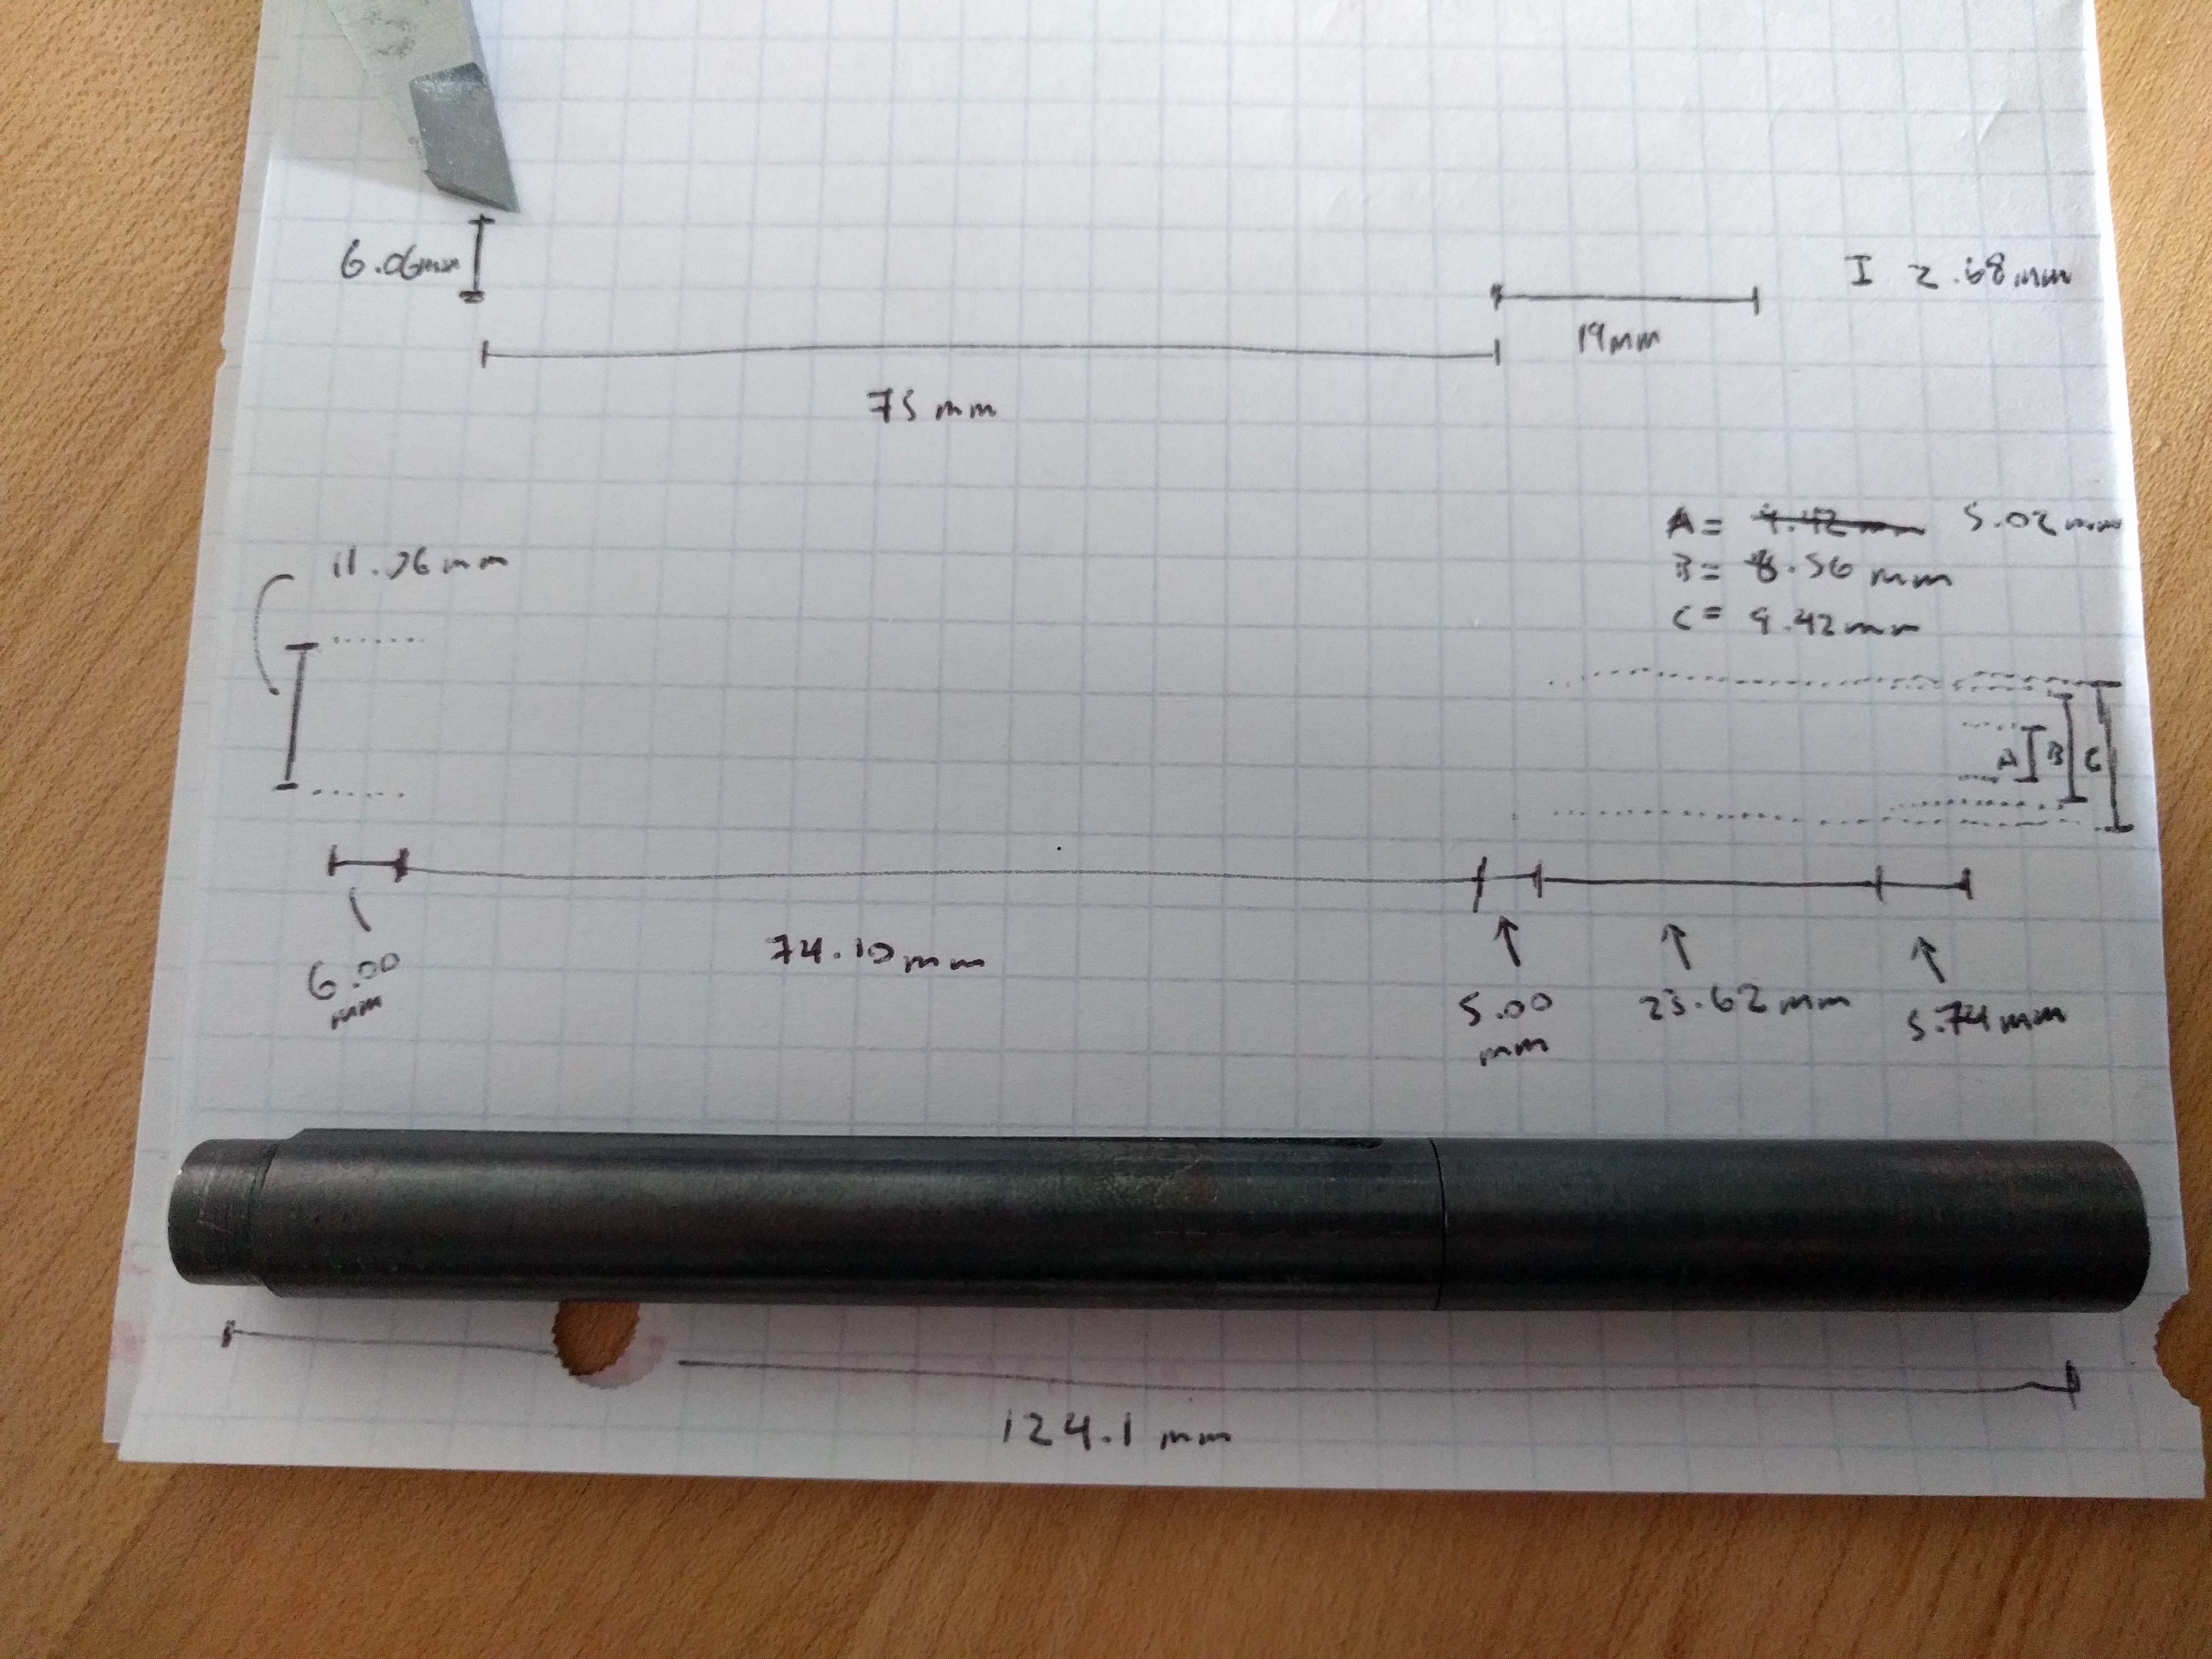 6.06mm
I 2.68mm
19mm
75 mm
A= 4.42mm 5.02mm
B= 8.56 mm
C= 9.42mm
11.36mm
A B C
74.10mm
6.00
mm
5.00
mm
23.62mm
5.74mm
124.1 mm